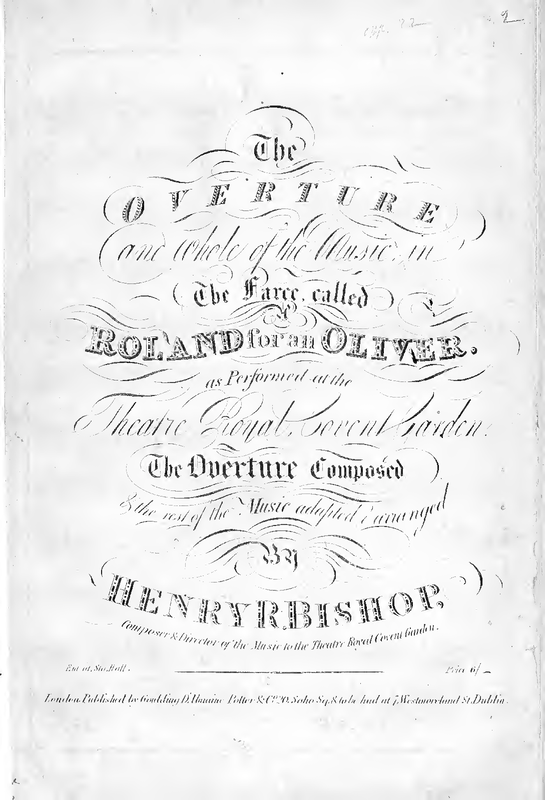 2
The
OVERTURE
and whole of the Music, in
The Farce, called
A
ROLAND for an OLIVER.
as Performed at the
Theatre Royal, Covent Garden.
The Overture Composed
& the rest of the Music adapted & arranged
By
HENRY R. BISHOP,
Composer & Director of the Music to the Theatre Royal Covent Garden.
Ent. at Sta. Hall. Price 6/_
London Published by Goulding D'Almaine Potter & Co. 20, Soho Sq. & to be had at 7, Westmoreland St. Dublin.